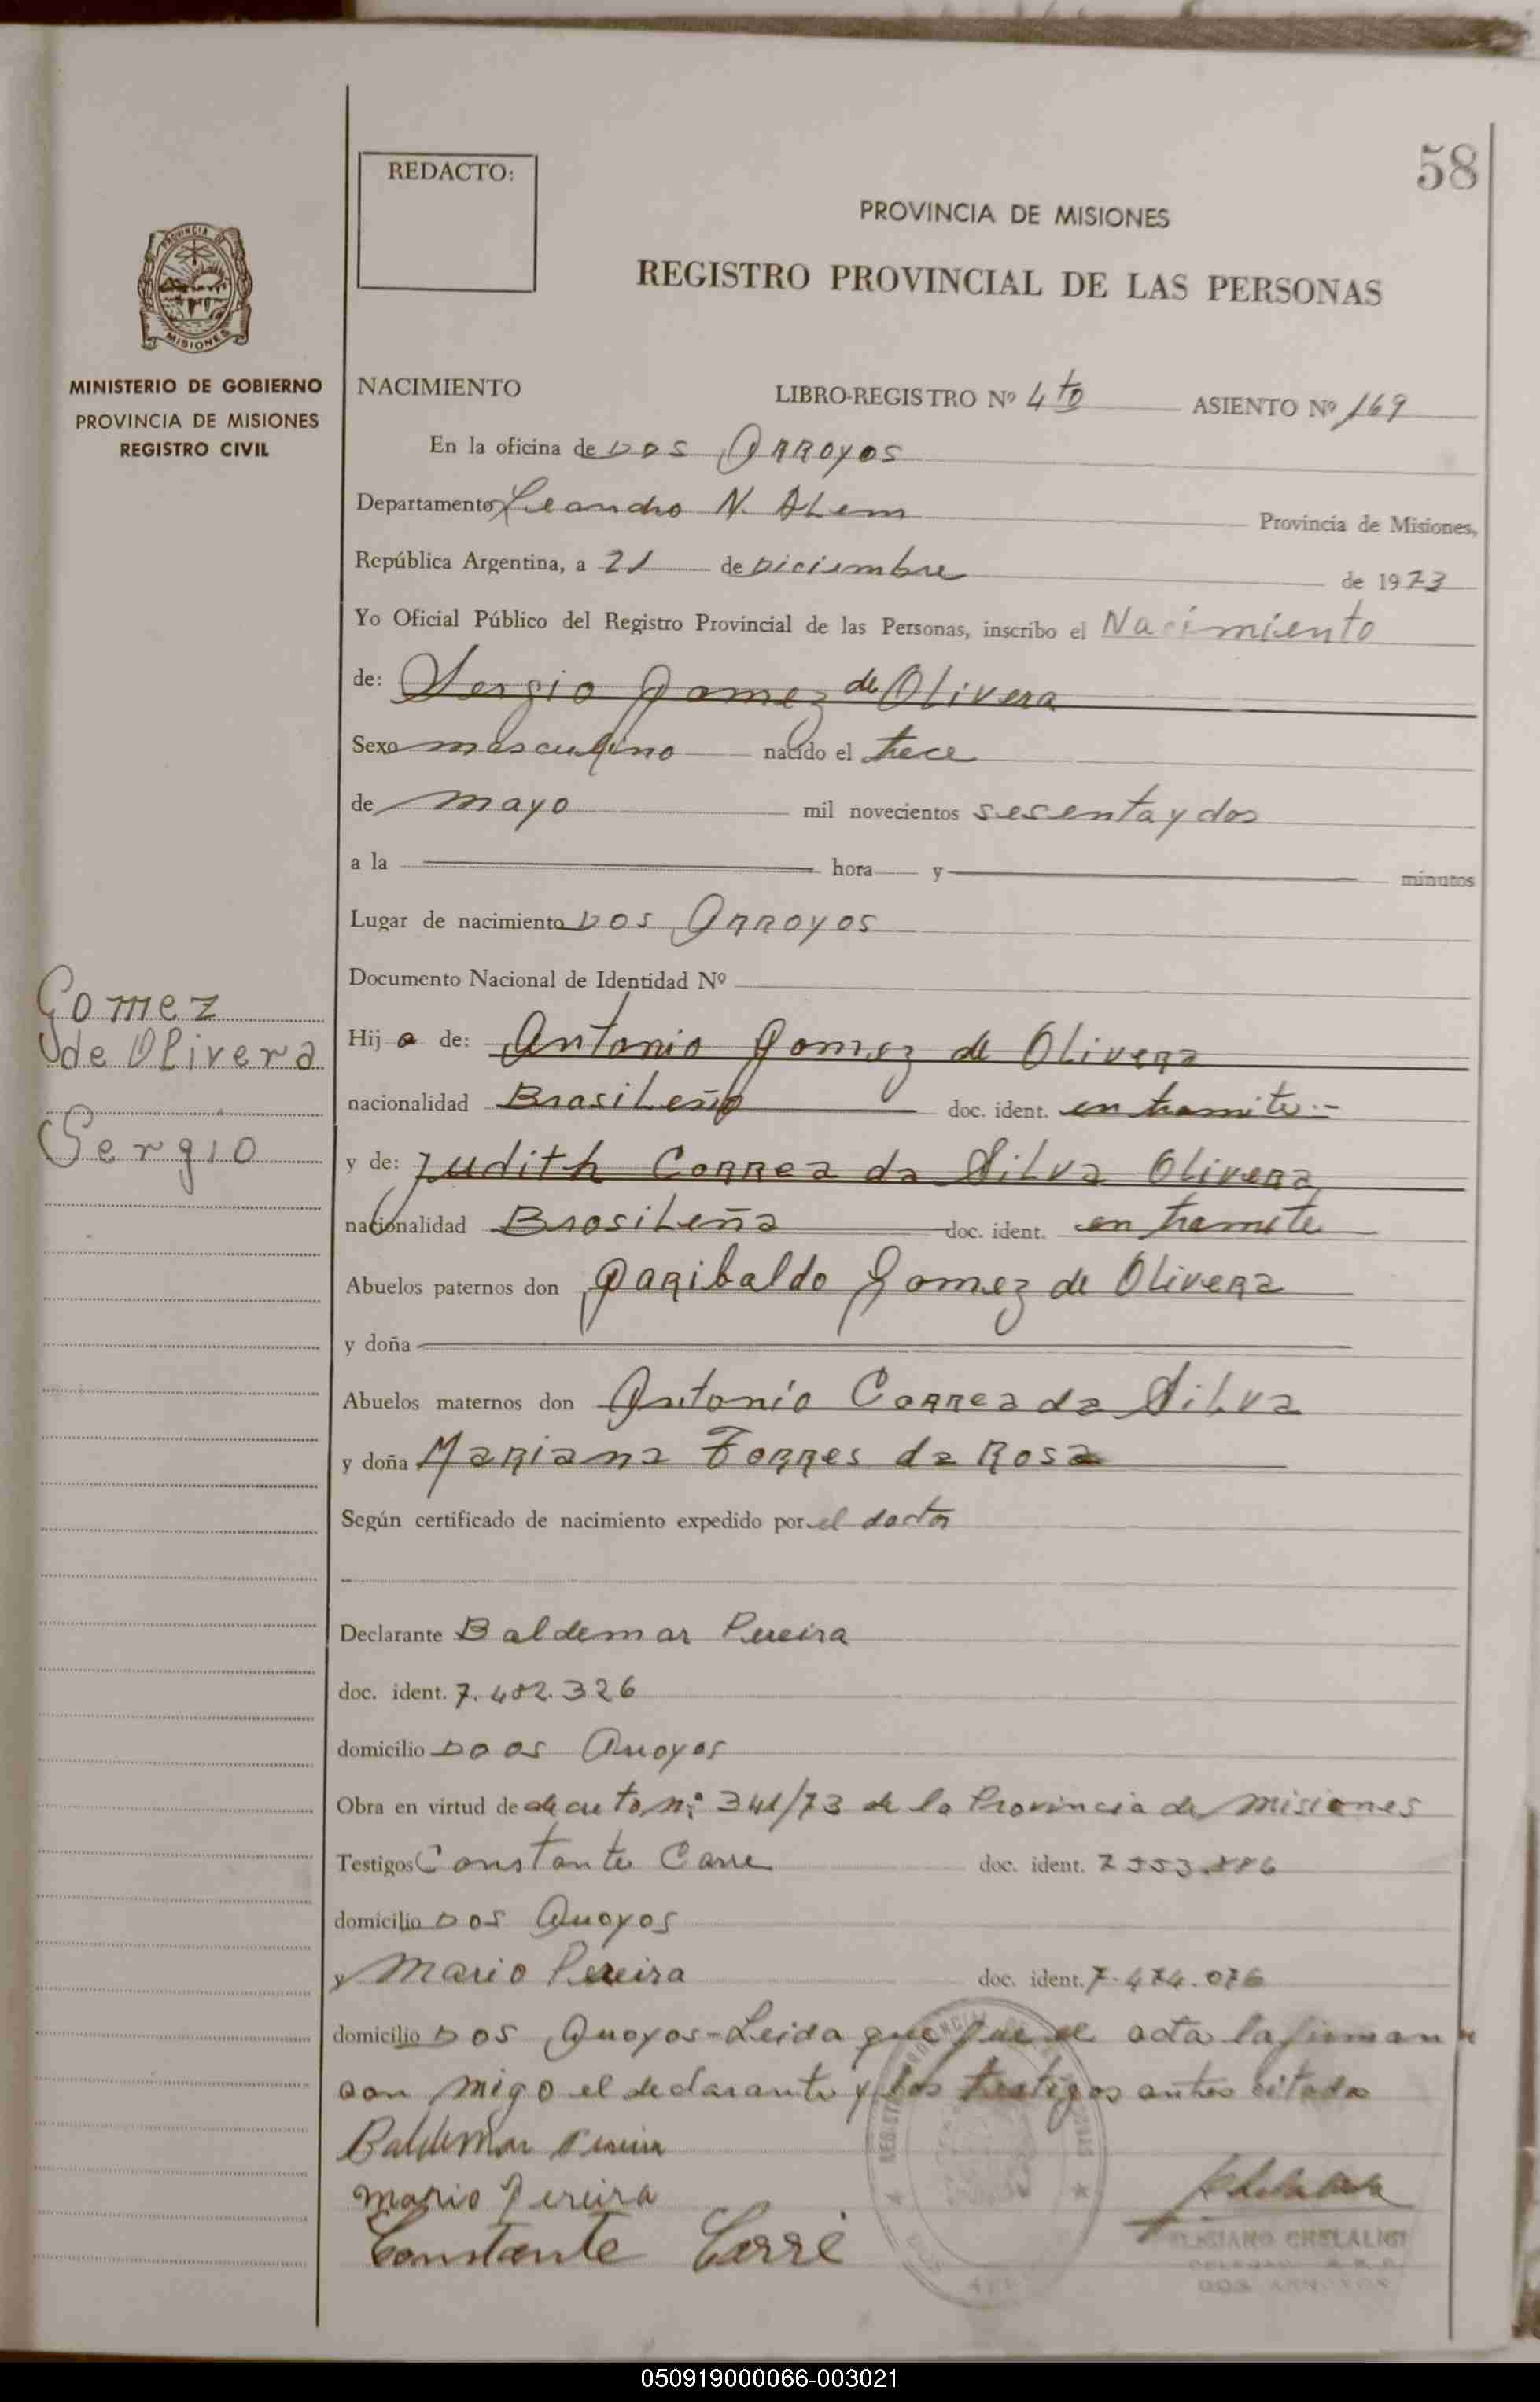 58
REDACTO:
PROVINCIA DE MISIONES
REGISTRO PROVINCIAL DE LAS PERSONAS
PROVINCIA DE
MISIONES
MINISTERIO DE GOBIERNO
PROVINCIA DE MISIONES
REGISTRO CIVIL
NACIMIENTO LIBRO-REGISTRO Nº 4to ASIENTO Nº 169
En la oficina de Dos Arroyos
Departamento Leandro N. Alem Provincia de Misiones,
República Argentina, a 21 de Diciembre de 1973
Yo Oficial Público del Registro Provincial de las Personas, inscribo el Nacimiento
de: Sergio Gomez de Olivera
Sexo masculino nacido el trece
de mayo mil novecientos sesenta y dos
a la hora y minutos
Lugar de nacimiento Dos Arroyos
Documento Nacional de Identidad Nº
Gomez
de Olivera
Sergio
Hij o de: Antonio Gomez de Olivera
nacionalidad Brasileño doc. ident. en tramite.-
y de: Judith Correa da Silva Olivera
nacionalidad Brasileña doc. ident. en tramite
Abuelos paternos don Garibaldo Gomez de Olivera
y doña
Abuelos maternos don Antonio Correa da Silva
y doña Mariana Torres da Rosa
Según certificado de nacimiento expedido por el doctor
Declarante Baldemar Pereira
doc. ident. 7.482.326
domicilio Doos Arroyos
Obra en virtud de decreto n:º 341/73 de la Provincia de Misiones
Testigos Constante Carre doc. ident.
domicilio Dos Arroyos
y Mario Pereira doc. ident. 7.474.076
domicilio Dos Arroyos-Leida que fue el acta la firman
con migo el declarante y los testigos antes citados
Baldemar Pereira
Mario Pereira
Constante Carré
CHELALICI
DOS ARROYOS
050919000066-003021